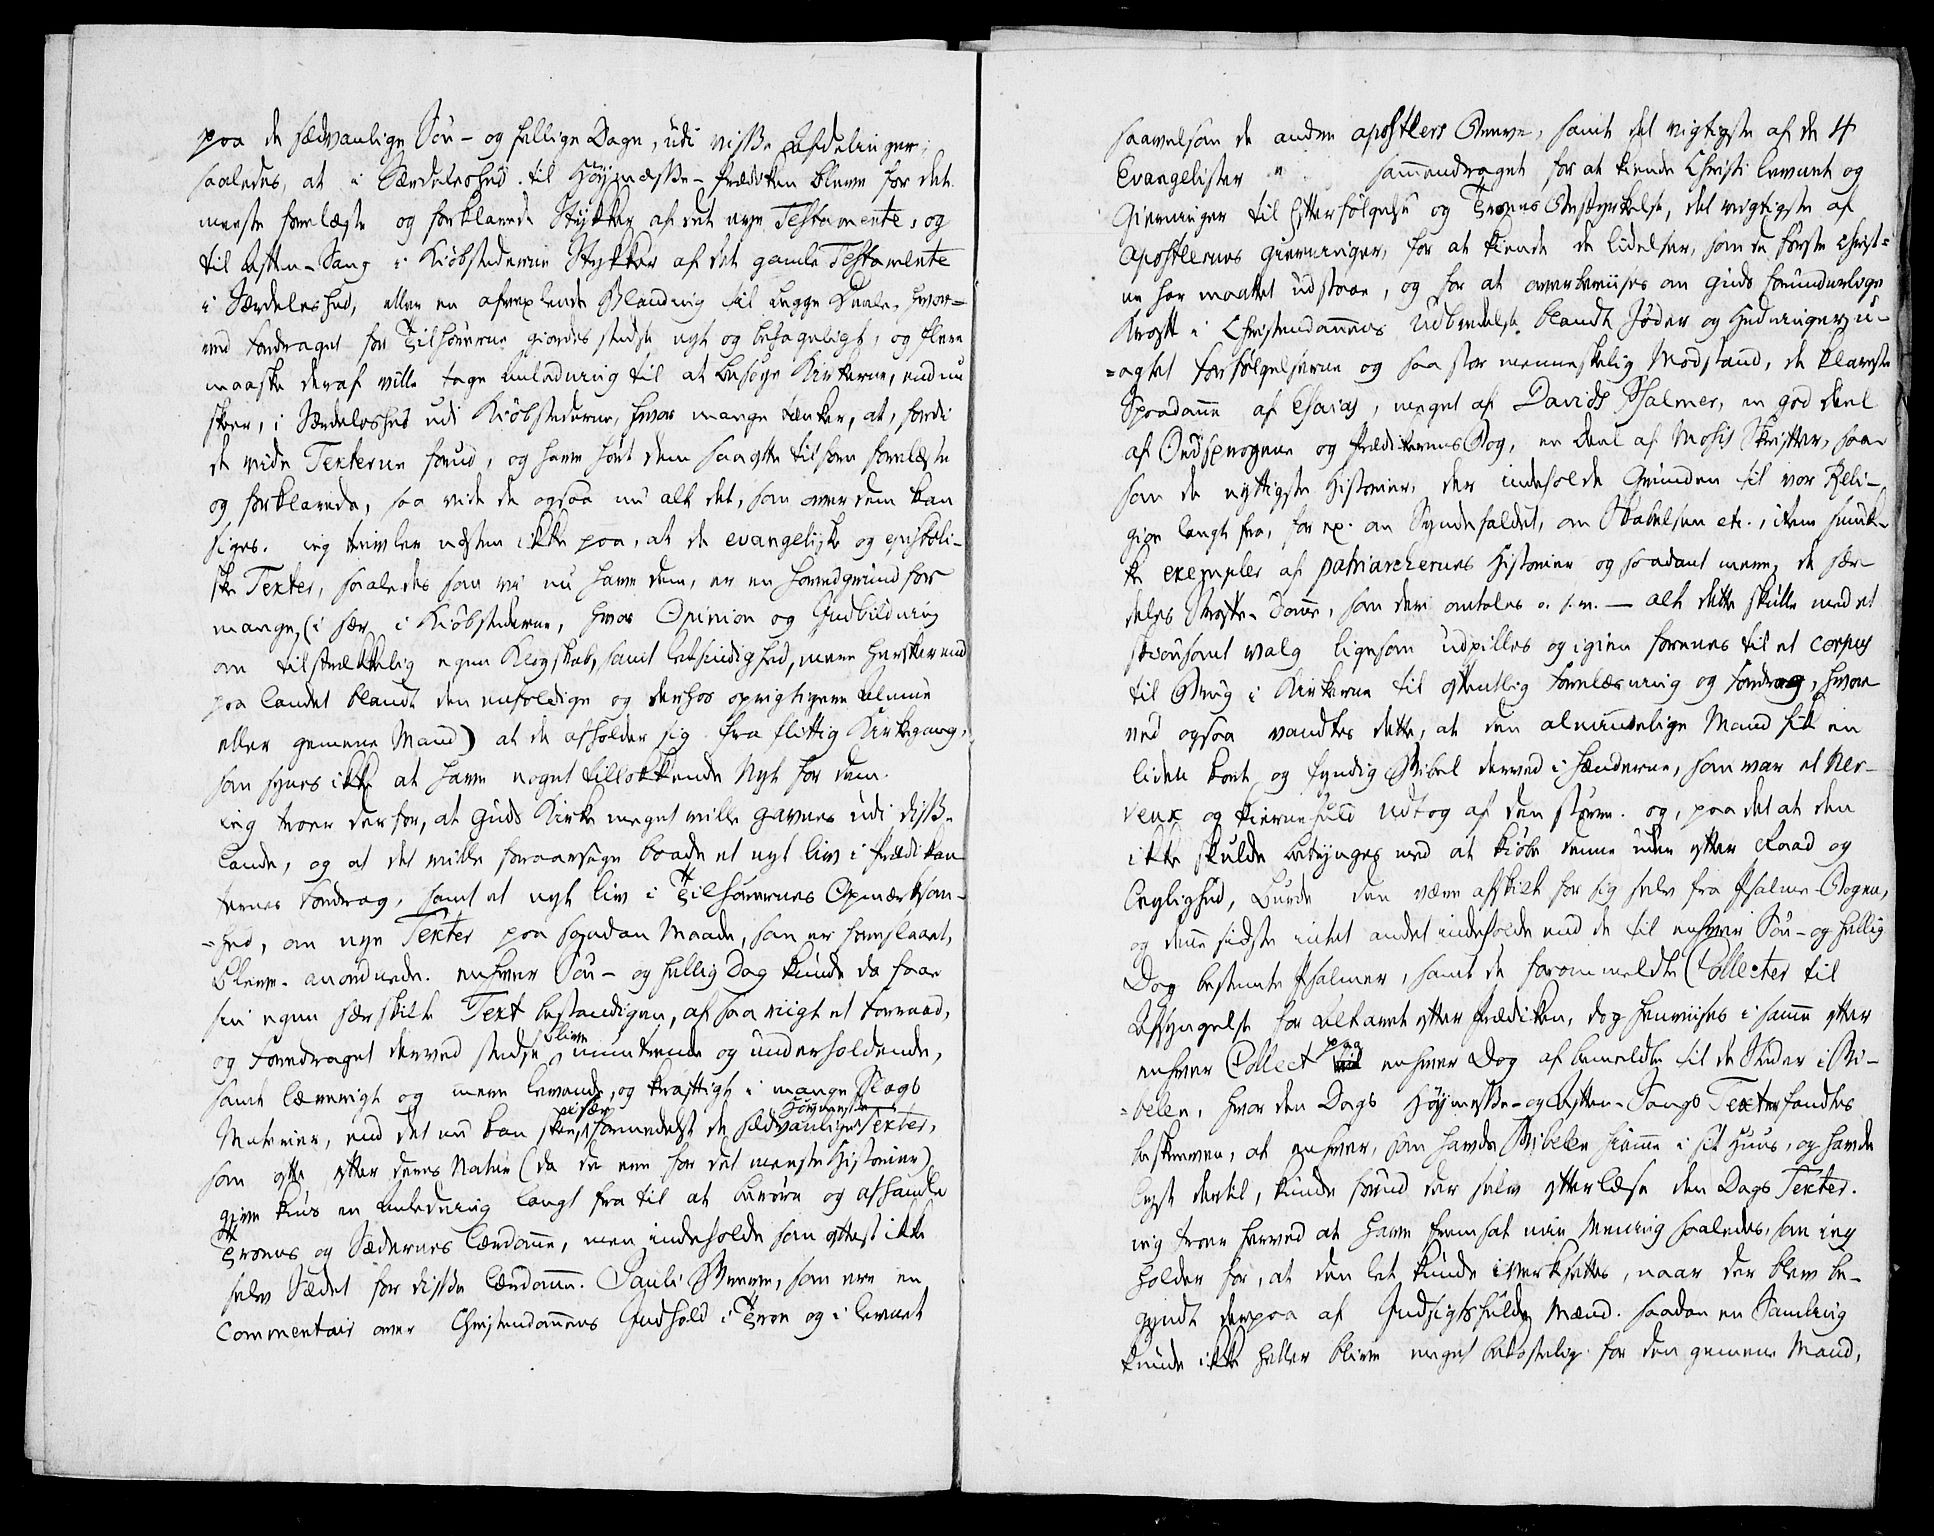 paa de sædvanlige Søn- og hellige Dage, udi visse Afdelinger;
saaledes, at i Særdeleshed til Høymesse-Prædiken bleve for det
meeste forelagte og forklarede Stykker af det nye Testamente, og
til Aften-Sang i Kiøbstederne Stykker af det gamle Testamente
i Særdeleshed, eller en afvexlende Blanding til begge Deele, hvor-
ved Fordraget for Tilhørerne giordes stedse nyt og behageligt, og flere
maaske deraf ville tage Anledning til at besøge Kirkerne, end nu
skeer, i Særdeleshed udi Kiøbstederne, hvor mange tænker, at, fordi
de vide Texterne forud, og have hørt dem saa ofte tilforn forelæste
og forklarede, saa vide de ogsaa nu alt det, som over dem kan
siges. ieg tvivler næsten ikke paa, at de evangeliske og epistoli-
ske Texter, saaledes som vi nu have dem, er en hovedgrund for
mange, (i sær i Kiøbstederne, hvor Opinion og Indbildning
om tilstrækkelig egen Klogskab, samt letsindighed, mere hersker end
paa landet blandt den eenfoldige og derhos oprigtigere Almue
eller gemene Mand) at de afholder sig fra flittig Kirkegang,
som synes ikke at have noget tillokkende Nyt for dem.
ieg troer derfor, at Guds Kirke meget ville gavnes udi disse
Lande, og at det ville foraarsage baade et nyt liv i Prædikan-
ternes Fordrag, samt et nyt liv i Tilhørernes Opmærksom-
=hed, om nye Texter paa saadan Maade, som er foreslaaet,
bleve anordnede. enhver Søn- og hellig Dag kunde da faae
sin egen særskilte Text bestandigen, af saa riigt et Forraad,
og Foredraget derved stedse blive muntrende og underholdende,
samt lærerigt og mere levende, og kraftigt i mange Slags
Materier, end det nu kan skee, i sær formedelst de sædvanlige Høymesse Texter,
som ofte efter deres Natur (da de ere for det meeste Historier)
give kuns en Anledning langt fra til at berøre og afhandle
Troens og Sædernes Lærdomme, men indeholde som oftest ikke
selv Sædet for disse Lærdomme. Pauli Breve, som ere en
Commentair over Christendommens Indhold i Troe og i levnet
saavelsom de andre apostlers Breve, samt det vigtigste af de 4
Evangelister " sammendraget for at kiende Christi levnet og
Gierninger til Efterfølgelse og Troens Bestyrkelse, det vigtigste af
Apostlernes gierninger, for at kiende de lidelser, som de første Christ=
ne har maattet udstaae, og for at overbeviises om Guds forunderlige
Kraft i Christendommens Udbredelse blandt Jøder og Hedninger, u-
=agtet Forfølgelserne og saa stor menneskelig Modstand, de klareste
Spaadomme af Esaias, meget af Davids Psalmer, en god deel
af Ordsprogene og Prædikerens Bog, en Deel af Mosis Skrifter, saa-
som de nyttigste Historier, der indeholde Grunden til vor Reli-
gion langt fra, for ex. om Syndefaldet, om Skabelsen etc., item smuk-
ke exempler af patriarchernes Historier og saadant mere, de sær-
deles Straffe-Domme, som der omtales o. s. v. — alt dette skulle med et
skiønsomt valg ligesom udpilles og igien forenes til et corpus
til Brug i Kirkerne til offentlig Forelæsning og Fordrag, hvor-
ved ogsaa vandtes dette, at den almindelige Mand fik en
liden kort og fyndig Bibel derved i hænderne, som var et ner-
veux og kiernefuld Udtog af den større. og, paa det at den
ikke skulde betynges med at kiøbe denne uden efter Raad og
Leylighed, burde den være afskilt for sig selv fra Psalme-Bogen,
og denne sidste intet andet indeholde end de til enhver Søn- og hellig
Dag bestemte Psalmer, samt de forommeldte Collecter til
Afsyngelse for Alteret efter Prædiken, dog henviises i samme efter
enhver Collect paa enhver Dag af bemeldte til de Steder i Bi-
=belen, hvor den Dags Høymesse- og Aften-Sangs Texter fandtes
beskreven, at enhver, som havde Bibelen hiemme i sit Huus, og havde
lyst dertil, kunde forud der selv efterlæse den Dags Texter.
ieg troer herved at have fremsat min Mening saaledes, som ieg
holder for, at den let kunde iverksættes, naar der blev be-
gyndt derpaa af Indsigtsfulde Mænd. saadan en Samling
kunde ikke heller blive meget bekostelig for den gemene Mand,